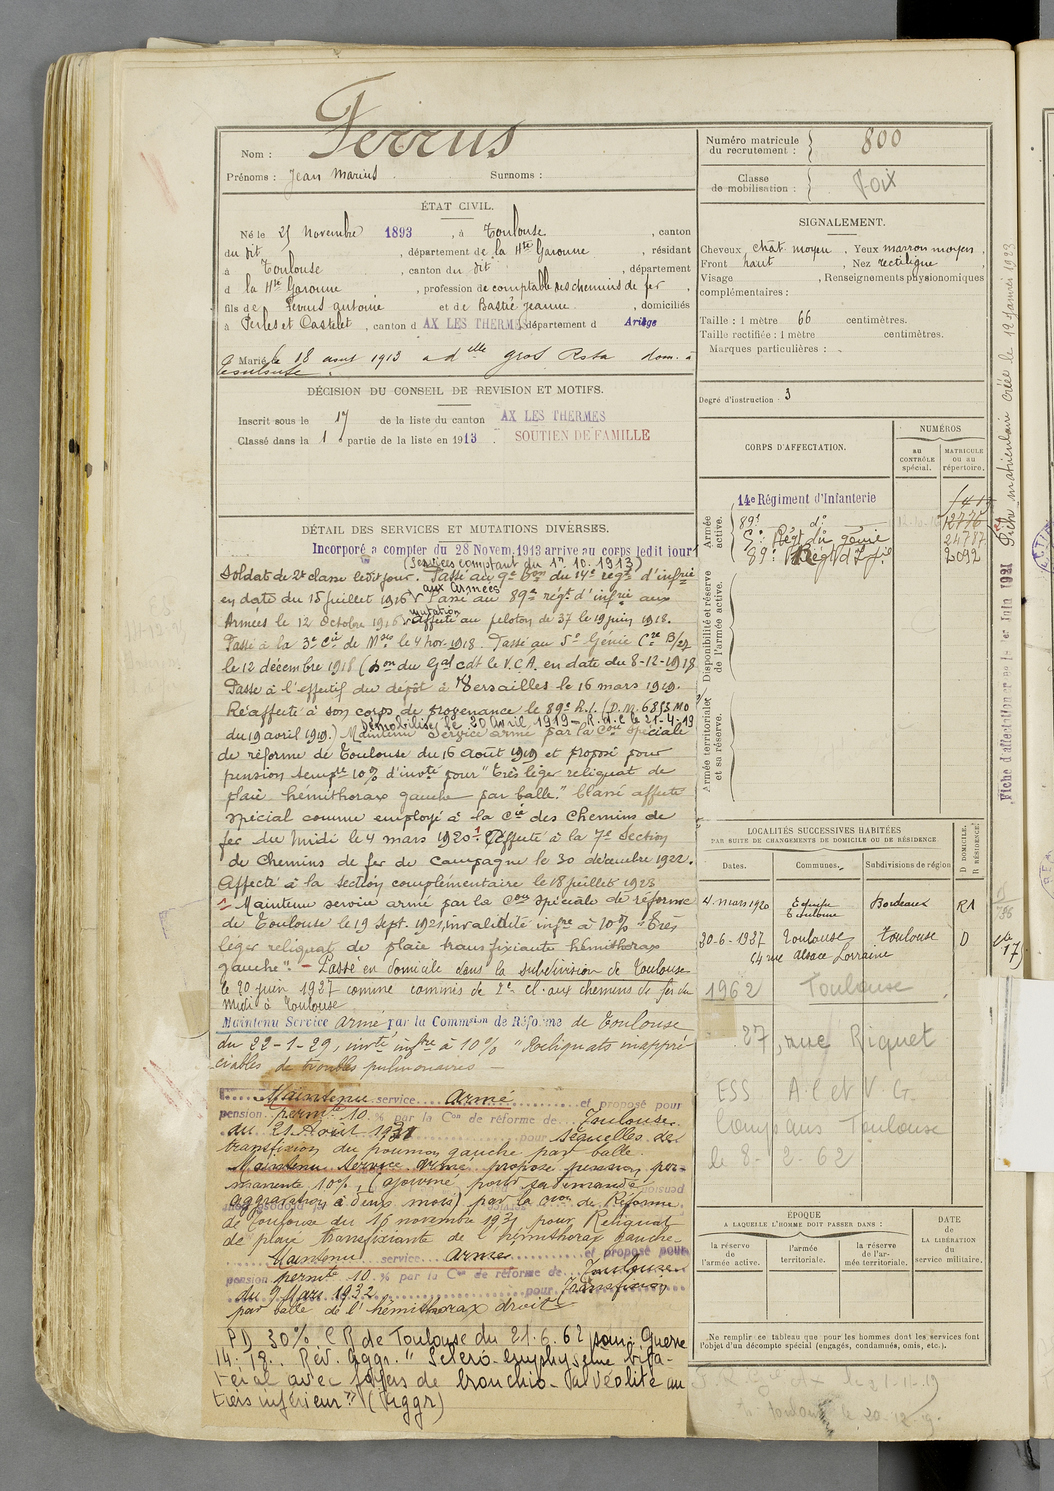 Ferrus
Nom :
Prénoms : Jean Marius Surnoms :
Numéro matricule
du recrutement : 800
Classe
de mobilisation : Foix
ÉTAT CIVIL.
Né le 25 Novembre 1893, à Toulouse, canton
du dit, département de la Hte Garonne, résidant
à Toulouse, canton du dit, département
d la Hte Garonne, profession de comptable aux chemins de fer
fils de Ferrus Antoine et de Bastié Jeanne, domiciliés
à Perles et Castelet, canton d AX LES THERMES département d Ariège
Marié le 18 août 1913 à dlle Gros Rosa dom. à
Toulouse.
DÉCISION DU CONSEIL DE REVISION ET MOTIFS.
Inscrit sous le 17 de la liste du canton AX LES THERMES
Classé dans la 1 partie de la liste en 1913. SOUTIEN DE FAMILLE
DÉTAIL DES SERVICES ET MUTATIONS DIVERSES.
Incorporé a compter du 28 Novem. 1913 arrive au corps ledit jour
(Services comptant du 1er 10. 1913)
Soldat de 2e classe ledit jour. Passé au 9e Bon du 14e régt d'infrie
aux Armées
en date du 15 juillet 1916 Passé au 89e régt d'infrie aux
mutation
Armées le 12 Octobre 1916 affecté au peloton de 37 le 19 juin 1918.
Passé à la 3e Cie de Mses le 4 nov. 1918. Passé au 5e Génie Cie B/27
le 12 décembre 1918 (Don du Gal cdt le V.C.A. en date du 8-12-1918
Passé à l'effectif du dépôt à Versailles le 16 mars 1919.
Réaffecté à son corps de provenance le 89e R.I. (D.M. 6813 MO
Démobilisé le 30 Avril 1919 - R.d.C le 21-4-19
du 19 avril 1919.) Maintenu service armé par la Con spéciale
de réforme de Toulouse du 16 Août 1919 et proposé pour
pension tempre 10% d'invté pour "très léger reliquat de
plaie hémithorax gauche par balle." Classé affecté
spécial comme employé à la Cie des Chemins de
fer du Midi le 4 mars 1920. Affecté à la 7e Section
de Chemins de fer de Campagne le 30 décembre 1922.
Affecté à la section complémentaire le 18 juillet 1923
1 Maintenu service armé par la Con spéciale de réforme
de Toulouse le 19 Sept. 1921, invalidité infre à 10% "Très
léger reliquat de plaie transfixiante hémithorax
gauche". - Passé en domicile dans la subdivision de Toulouse
le 30 juin 1927 comme commis de 2e cl. aux chemins de fer du
Midi à Toulouse
Maintenu Service armé par la Commion de Réforme de Toulouse
du 22-1-29, invté infre à 10% "Reliquats inappré-
ciables de troubles pulmonaires -
Maintenu service armé et proposé pour
pension permte 10 % par la Con de réforme de Toulouse
du 21 Août 1931 pour séquelles de
transfixion du poumon gauche par balle.
Maintenu service armé proposé pension per-
manente 10%, (ajourné pour sa demande
aggravation à deux mois) par la Con de Réforme
de Toulouse du 16 novembre 1931 pour Reliquat
de plaie transfixiante de l'hémithorax gauche.
Maintenu service armé et proposé pour
pension permte 10 % par la Con de réforme de Toulouse
du 9 Mars 1932 pour Transfixion
par balle de l'hémithorax droit
PD 30% CR de Toulouse du 21.6.62 pour Guerre
14. 18. Rév. Aggr. "Scléro-emphysème bila-
téral avec foyers de broncho-alvéolite au
tiers inférieur" (Aggr)
SIGNALEMENT.
Cheveux chât moyen, Yeux marron moyen,
Front haut, Nez rectiligne,
Visage , Renseignements physionomiques
complémentaires :
Taille : 1 mètre 66 centimètres.
Taille rectifiée : 1 mètre centimètres.
Marques particulières :
Degré d'instruction : 3
CORPS D'AFFECTATION.
NUMÉROS
au
CONTRÔLE
spécial.
MATRICULE
ou au
répertoire.
Armée
active.
14e Régiment d'Infanterie
89e do 12776
5e Régt du génie 24787
89e Régt d'Inf. 2092
Disponibilité et réserve
de l'armée active.
Armée territoriale
et sa réserve.
LOCALITÉS SUCCESSIVES HABITÉES
PAR SUITE DE CHANGEMENTS DE DOMICILE OU DE RÉSIDENCE
Dates. Communes. Subdivisions de région
D DOMICILE.
R RÉSIDENCE.
4 mars 1920 Toulouse Bordeaux R
30-6-1927 Toulouse Toulouse D
64 rue Alsace Lorraine
1962 Toulouse
27, rue Riquet
ESS A.C et V.G.
Toulouse
le 8-2-62
ÉPOQUE
A LAQUELLE L'HOMME DOIT PASSER DANS :
la réserve
de
l'armée active.
l'armée
territoriale.
la réserve
de l'ar-
mée territoriale.
DATE
de
LA LIBÉRATION
du
service militaire.
Ne remplir ce tableau que pour les hommes dont les services font
l'objet d'un décompte spécial (engagés, condamnés, omis, etc.).
Fiche matriculaire créée le 12 Janvier 1923
Fiche d'affectation créée le 1er Juin 1921